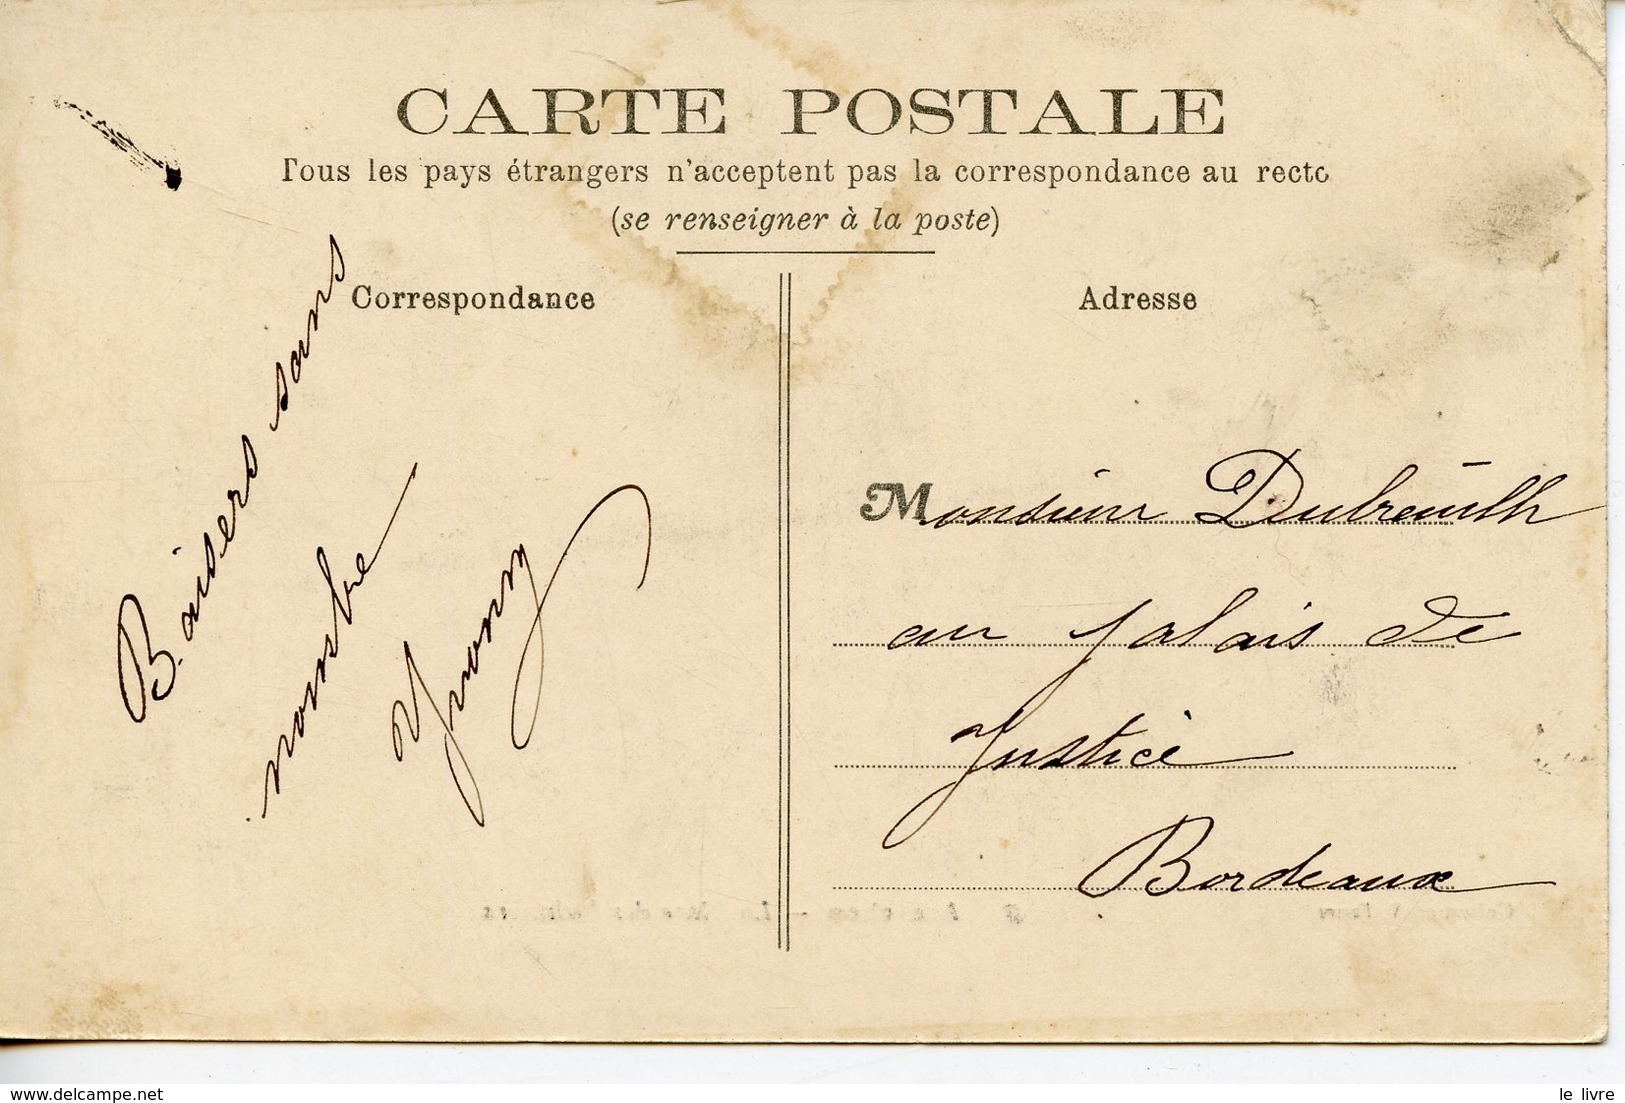 CARTE POSTALE
Tous les pays étrangers n'acceptent pas la correspondance au recto
(se renseigner à la poste)
Correspondance
Adresse
Baisers sans
nombre
Monsieur Dubreuilh
au palais de
Justice
Bordeaux
le livre